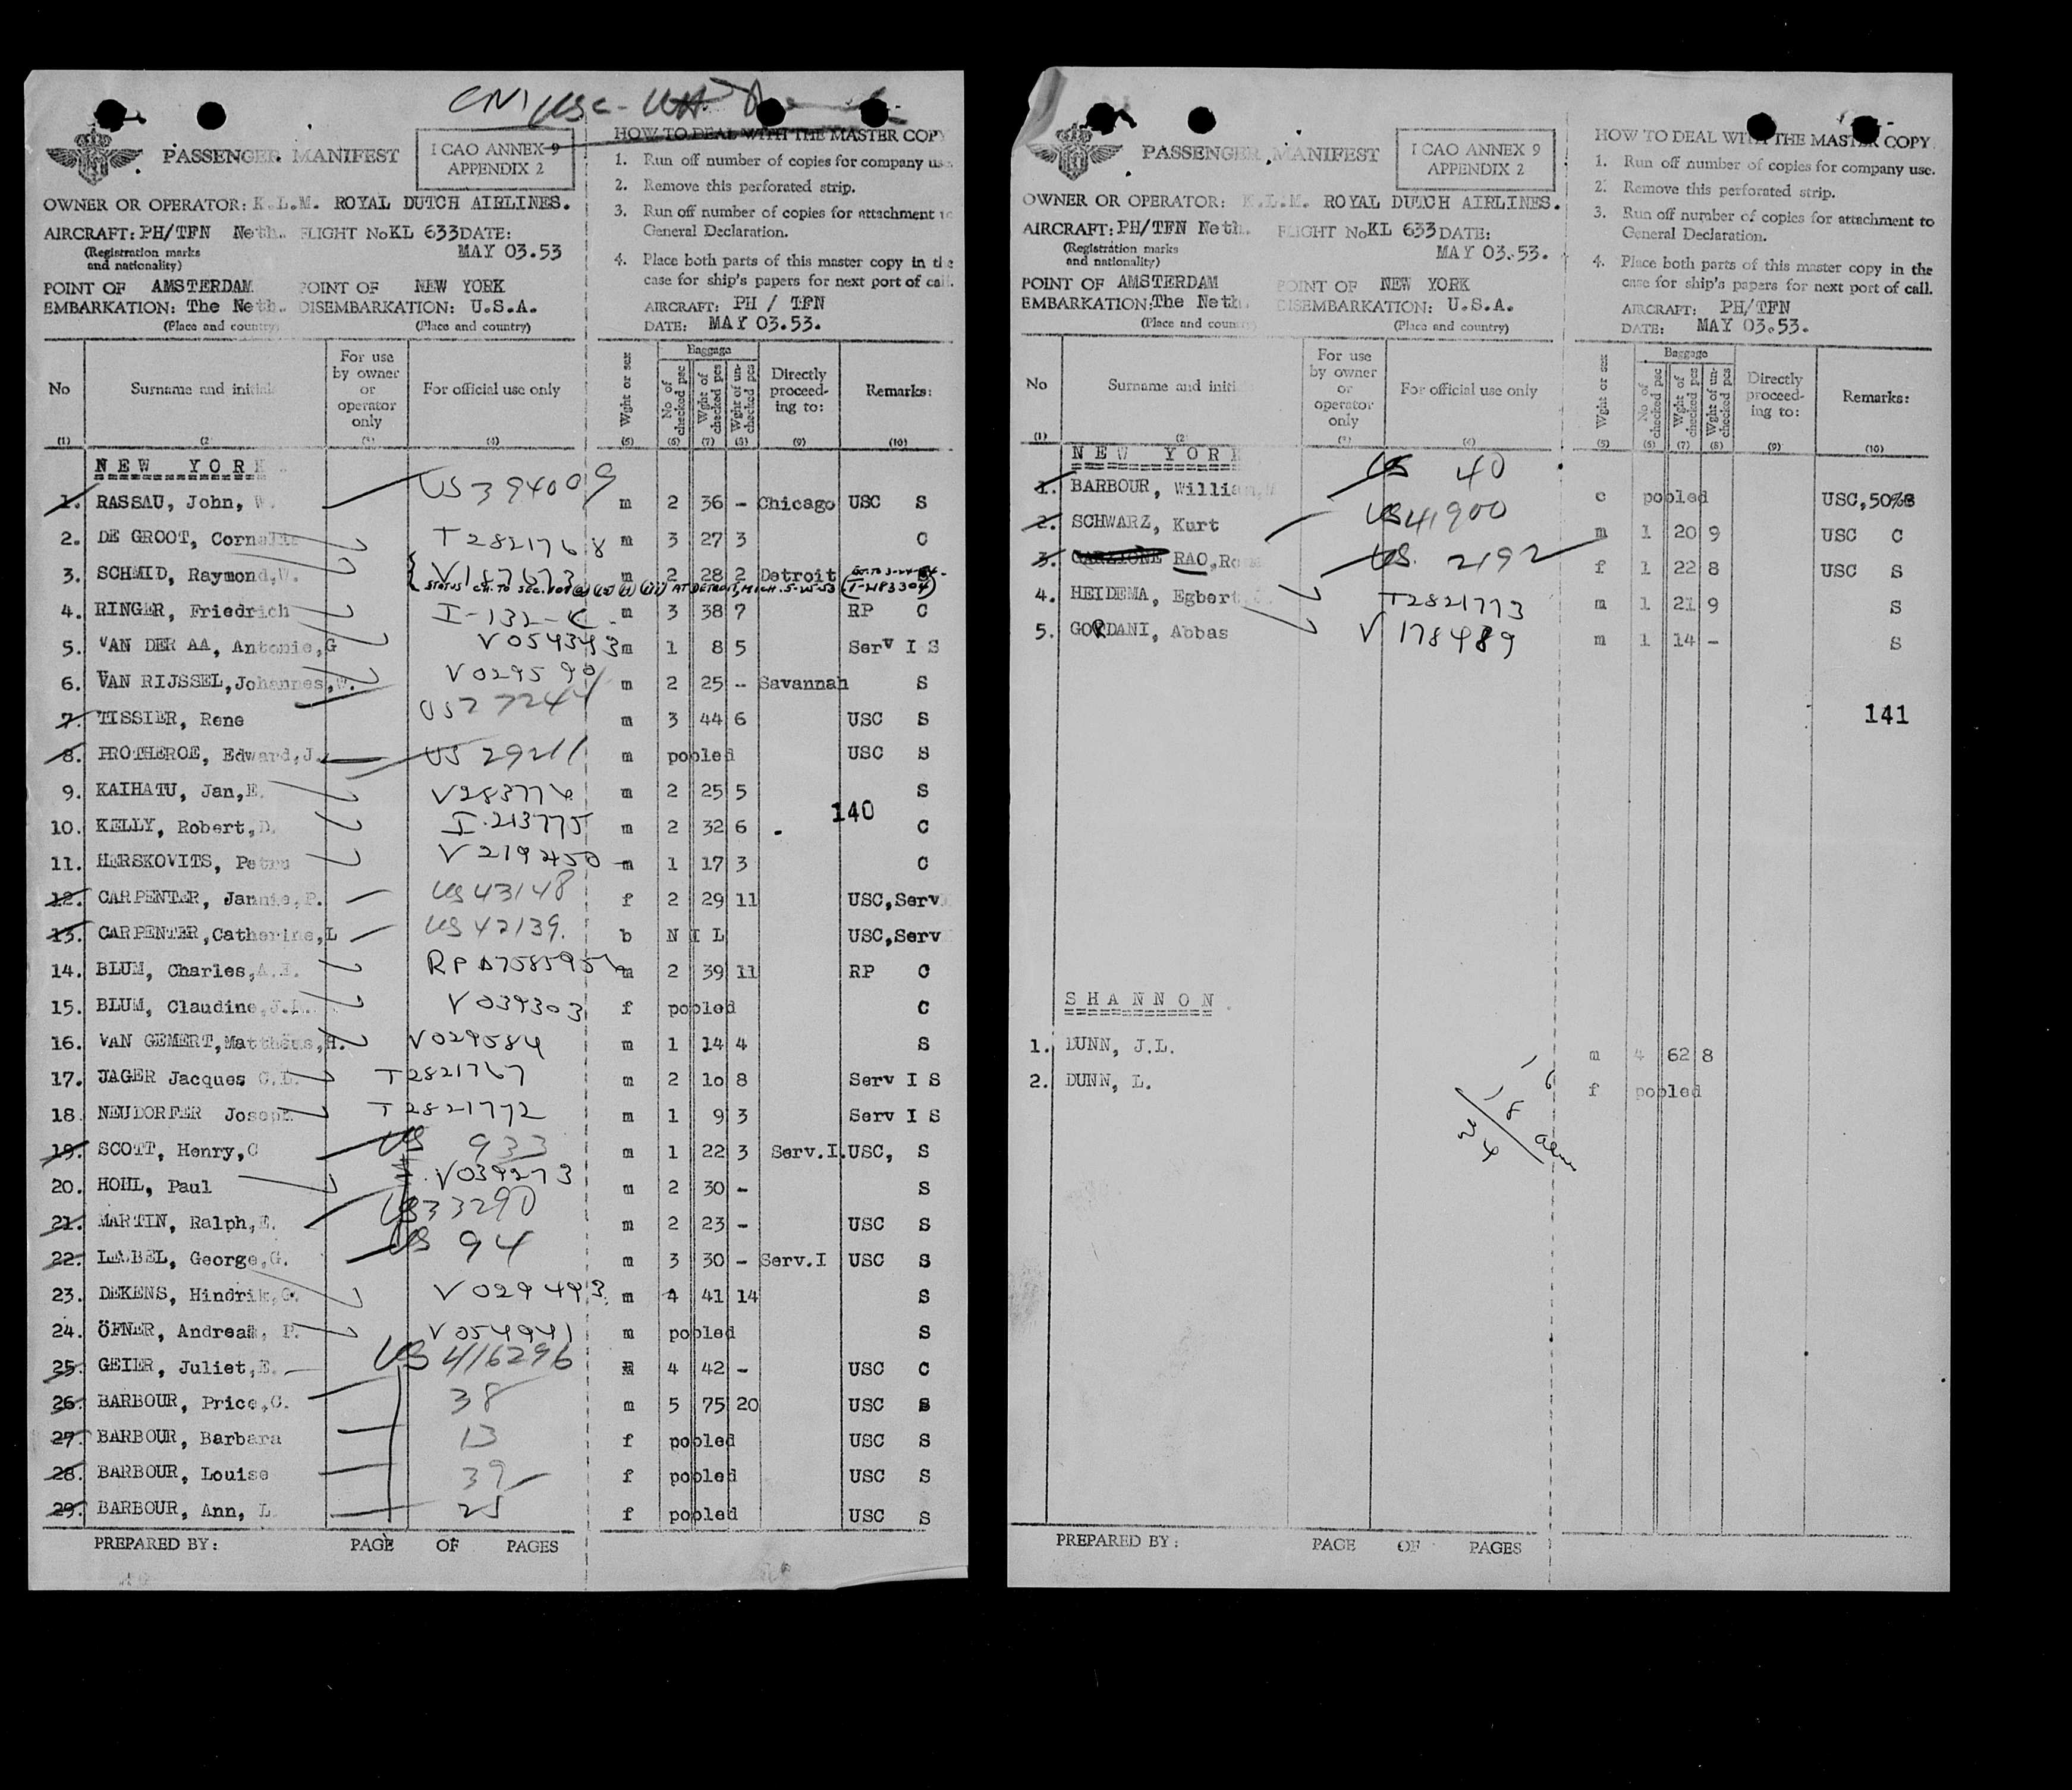 CM USC-
PASSENGER MANIFEST
I CAO ANNEX 9
APPENDIX 2
OWNER OR OPERATOR: K.L.M. ROYAL DUTCH AIRLINES.
AIRCRAFT: PH/TFN Neth. FLIGHT No KL 633 DATE:
(Registration marks MAY 03.53
and nationality)
POINT OF AMSTERDAM POINT OF NEW YORK
EMBARKATION: The Neth. DISEMBARKATION: U.S.A.
(Place and country) (Place and country)
HOW TO DEAL WITH THE MASTER COPY
1. Run off number of copies for company use.
2. Remove this perforated strip.
3. Run off number of copies for attachment to
General Declaration.
4. Place both parts of this master copy in the
case for ship's papers for next port of call.
AIRCRAFT: PH / TFN
DATE: MAY 03.53.
No Surname and initial For use by owner or operator only For official use only Wght or sex Baggage No of checked pec Wght of checked pcs Wght of un-checked pcs Directly proceed-ing to: Remarks:
(1) (2 (3) (4) (5) (6) (7) (8) (9) (10)
NEW YORK
1. RASSAU, John, W. US 394009 m 2 36 - Chicago USC S
2. DE GROOT, Cornelis T2821768 m 3 27 3 C
3. SCHMID, Raymond,W. V187673 m 2 28 2 Detroit S
STATUS CH. TO SEC. AT DETROIT, MICH. 5-25-53 (T-1183304)
4. RINGER, Friedrich I-132- m 3 38 7 RP C
5. VAN DER AA, Antonie,G V054343 m 1 8 5 Serv I S
6. VAN RIJSSEL,Johannes,W. V029590 m 2 25 - Savannah S
7. TISSIER, Rene US27244 m 3 44 6 USC S
8. PROTHEROE, Edward,J. US 29211 m pooled USC S
9. KAIHATU, Jan,E. V283776 m 2 25 5 S
140
10. KELLY, Robert,D. I.213775 m 2 32 6 C
11. HERSKOVITS, Petru V219450 m 1 17 3 C
12. CARPENTER, Jannie,P. US43148 f 2 29 11 USC,Serv
13. CARPENTER,Catherine,L US 42139. b N I L USC,Serv
14. BLUM, Charles,A.I. RP A7585954 m 2 39 11 RP C
15. BLUM, Claudine,J. V039303 f pooled C
16. VAN GEMERT,Matthëus,H. V029584 m 1 14 4 S
17. JAGER Jacques C.L. T2821767 m 2 10 8 Serv I S
18. NEUDORFER Joseph T2821772 m 1 9 3 Serv I S
19. SCOTT, Henry,C US 933 m 1 22 3 Serv.I.USC, S
20. HOHL, Paul V039273 m 2 30 - S
21. MARTIN, Ralph,E. US33290 m 2 23 - USC S
22. LEABEL, George,G. US 94 m 3 30 - Serv.I USC S
23. DEKENS, Hindrik,G. V029493 m 4 41 14 S
24. ÖFNER, Andreas, P. V054941 m pooled S
25. GEIER, Juliet,E. US 416296 4 42 - USC C
26. BARBOUR, Price,C. 38 m 5 75 20 USC S
27. BARBOUR, Barbara 13 f pooled USC S
28. BARBOUR, Louise 39 f pooled USC S
29. BARBOUR, Ann, L 25 f pooled USC S
PREPARED BY: PAGE OF PAGES
PASSENGER MANIFEST
I CAO ANNEX 9
APPENDIX 2
OWNER OR OPERATOR: K.L.M. ROYAL DUTCH AIRLINES.
AIRCRAFT: PH/TFN Neth. FLIGHT No KL 633 DATE:
(Registration marks MAY 03.53.
and nationality)
POINT OF AMSTERDAM POINT OF NEW YORK
EMBARKATION: The Neth. DISEMBARKATION: U.S.A.
(Place and country) (Place and country)
HOW TO DEAL WITH THE MASTER COPY
1. Run off number of copies for company use.
2. Remove this perforated strip.
3. Run off number of copies for attachment to
General Declaration.
4. Place both parts of this master copy in the
case for ship's papers for next port of call.
AIRCRAFT: PH/TFN
DATE: MAY 03.53.
No Surname and initi For use by owner or operator only For official use only Wght or sex Baggage No of checked pec Wght of checked pcs Wght of un-checked pcs Directly proceed-ing to: Remarks:
(1) (2 (3) (4) (5) (6) (7) (8) (9) (10)
NEW YORK
1. BARBOUR, William,M US 40 c pooled USC,50%S
2. SCHWARZ, Kurt US41900 m 1 20 9 USC C
3. CARLIONE RAO, US. 2192 f 1 22 8 USC S
4. HEIDEMA, Egbert T2821773 m 1 21 9 S
5. GORDANI, Abbas V 178489 m 1 14 - S
141
SHANNON
1. DUNN, J.L. m 4 62 8
2. DUNN, L. f pooled
16
18
34